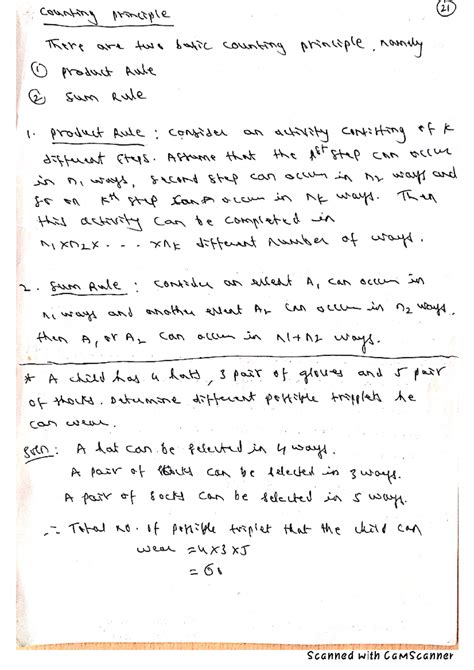 Counting principle
21
There are two basic counting principle, namely
① product Rule
② Sum Rule
1. Product Rule : Consider an activity consisting of K
different steps. Assume that the 1st step can occur
in n1 ways, second step can occur in n2 ways and
so on Kth step can occur in nk ways. Then
this activity can be completed in
n1×n2× . . . ×nk different number of ways.
2. Sum Rule : consider an event A1 can occur in
n1 ways and another event A2 can occur in n2 ways,
then A1 or A2 can occur in n1+n2 ways.
* A child has 4 hats, 3 pair of gloves and 5 pair
of shocks. Determine different possible tripplets he
can wear.
Soln : A hat can be selected in 4 ways.
A pair of can be selected in 3 ways.
A pair of socks can be selected in 5 ways.
∴ Total no. of possible triplet that the child can
wear = 4×3×5
= 60
Scanned with CamScanner